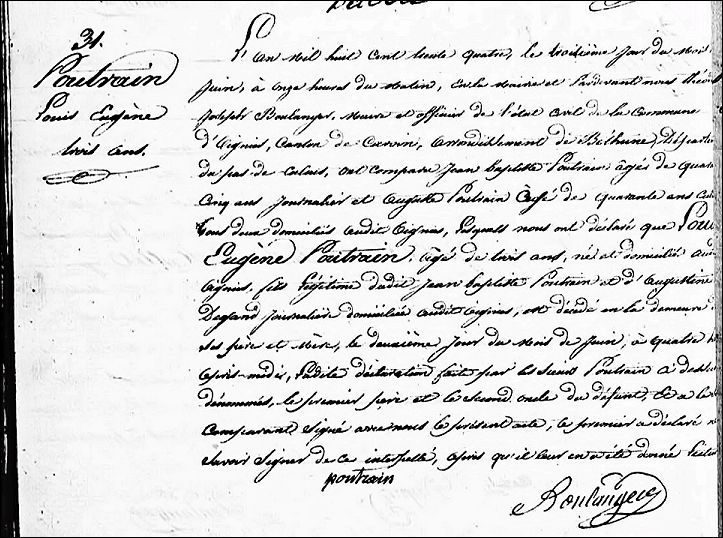 31.
Poutrain
Louis Eugène
trois ans.
L'an mil huit cent trente quatre, le troisième jour du mois
juin, à onze heures du matin, en la mairie et pardevant nous
joseph Boulanger, maire et officier de l'état civil de la Commune
d'Oignies, Canton de Carvin, arrondissement de Béthune,
du pas de calais, ont comparu jean baptiste Poutrain âgés de
cinq ans journalier et auguste Poutrain âgé de quarante ans
tous deux domiciliés audit oignies, lesquels nous ont déclaré que
Eugène Poutrain, âgé de trois ans, né et domicilié
oignies, fils légitime dudit jean baptiste Poutrain et d'augustine
journalière domiciliée audit oignies, est décédé en la demeure
ses père et mère, le deuxième jour du mois de juin, à quatre
après-midi, ladite déclaration faite par les sieurs Poutrain
dénommés, le premier père et le second oncle du défunt,
Comparant signé avec nous le présent acte, le premier a déclaré
savoir signer de ce interpellé, après qu'il leur en a été donné
poutrain
Boulanger